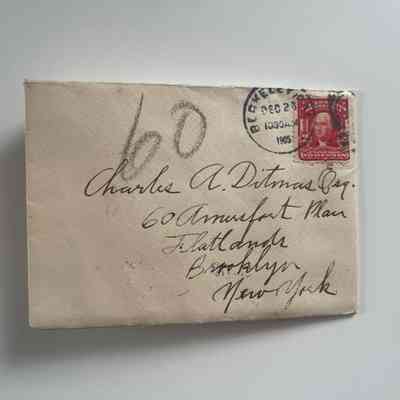 60
BERKELEY
DEC 2
1030AM
1905
Charles A. Ditmas Esq.
60 Amersfort Plair
Flatlands
Brooklyn
New York